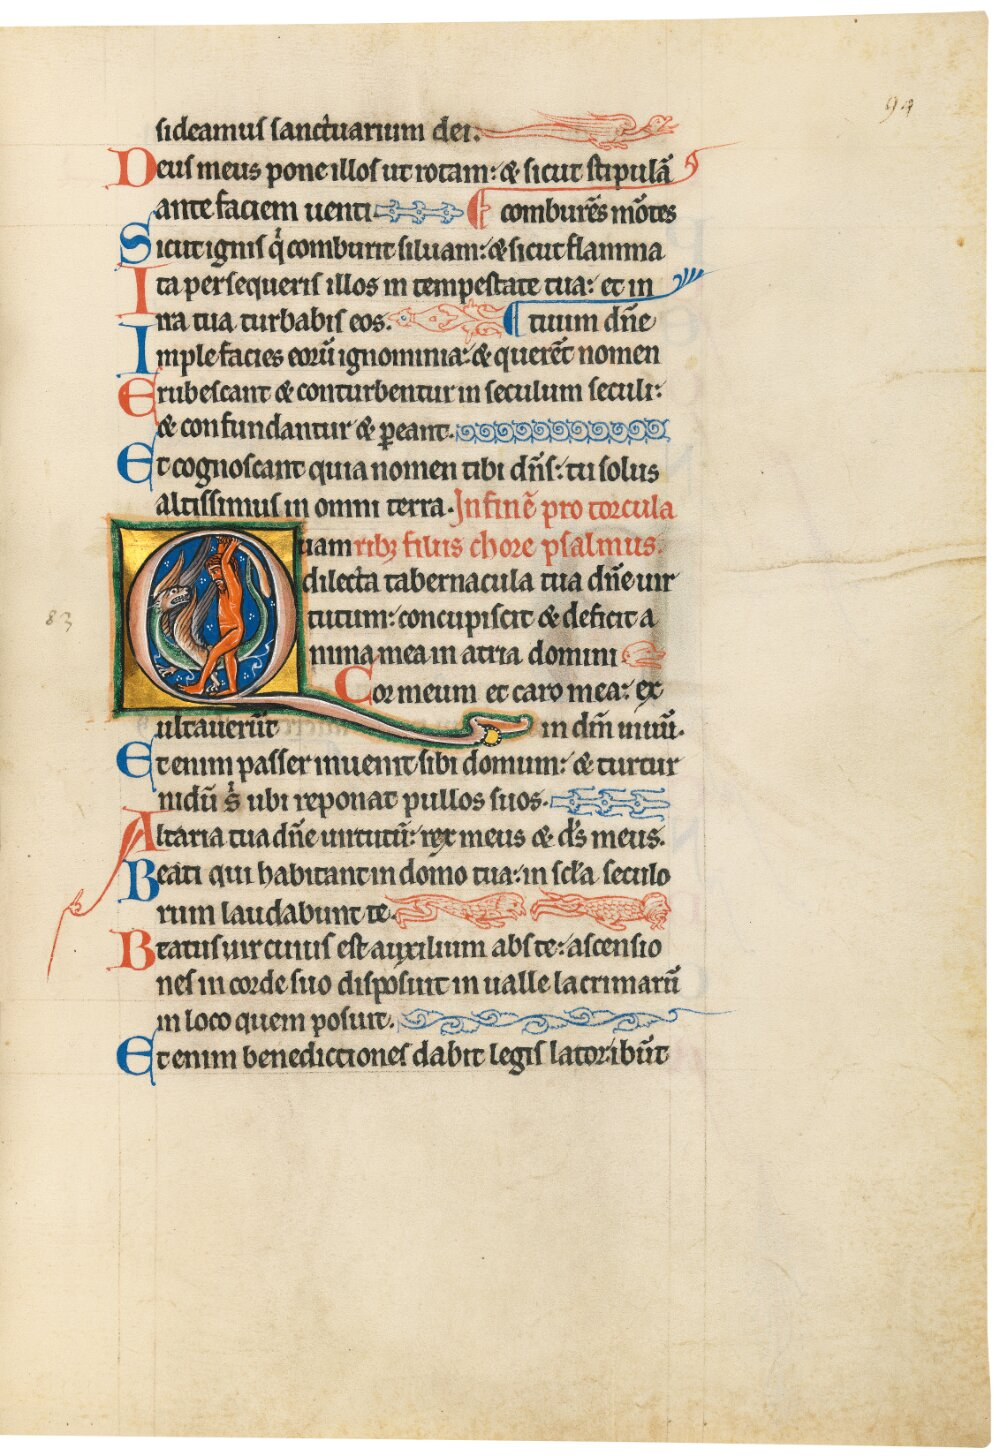 94
sideamus sanctuarium dei:
Deus meus pone illos ut rotam: & sicut stipulā
ante faciem uenti comburēs mōtes
Sicut ignis q̇ comburit siluam: & sicut flamma
Ita persequeris illos in tempestate tua: et in
ira tua turbabis eos. tuum dn̄e
Imple facies eorū ignominia: & querēt nomen
Erubescant & conturbentur in seculum seculi:
& confundantur & ꝑeant.
Et cognoscant quia nomen tibi dn̄s: tu solus
altissimus in omni terra. In finē pro torcula
Quam ribꝫ filiis chore psalmus.
dilecta tabernacula tua dn̄e uir
tutum: concupiscit & deficit a
83
nima mea in atria domini
Cor meum et caro mea: ex
ultauerūt in dm̄ uiuū.
Etenim passer inuenit sibi domum: & turtur
nidū s̄ ubi reponat pullos suos.
Altaria tua dn̄e uirtutū: rex meus & ds̄ meus.
Beati qui habitant in domo tua: in scl̄a seculo
rum laudabunt te.
Beatus uir cuius est auxilium abs te: ascensio
nes in corde suo disposuit in ualle lacrimarū
in loco quem posuit.
Etenim benedictiones dabit legis lator ibūt